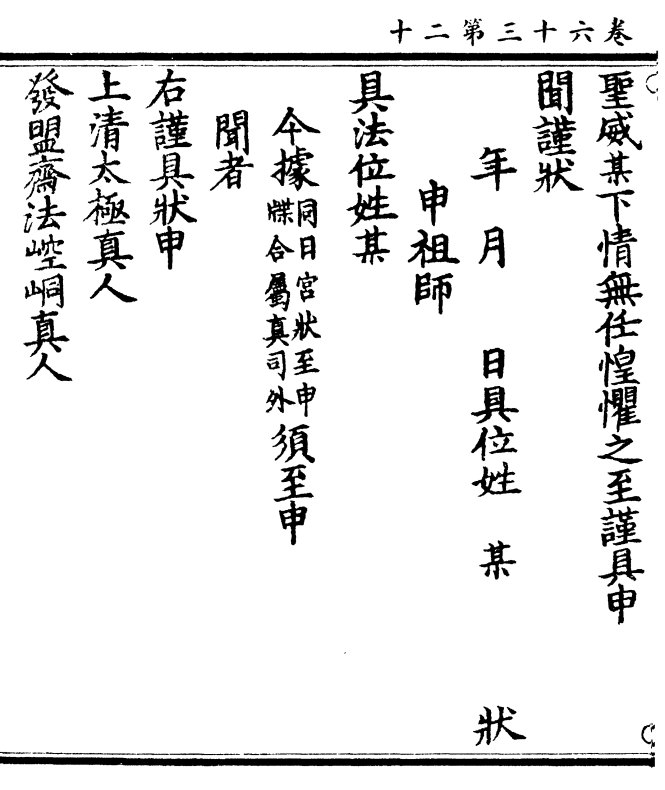 卷六十三第二十
聖威某下情無任惶懼之至謹具申
聞謹狀
年月　日具位姓　某　狀
申祖師
具法位姓某
今據同日宮狀至申牒合屬真司外須至申
聞者
右謹具狀申
上清太極真人
發盟齋法崆峒真人